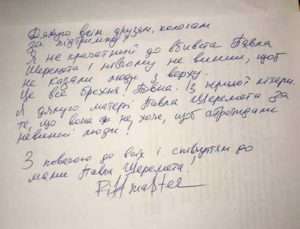 Дякую всім друзям, колегам
за підтримку!
Я не причетний до вбивста Павла
Шеремета і нікому не вишни, щоб
не казали люди з верху.
Це все брехня! Повна. Із першої літери.
Я дякую матері Павла Шеремета за
те, що вона не хоче, щоб страждали
невинні люди!
З повагою до всіх і співчуттям до
мами Павла Шеремета!
Riffmaster